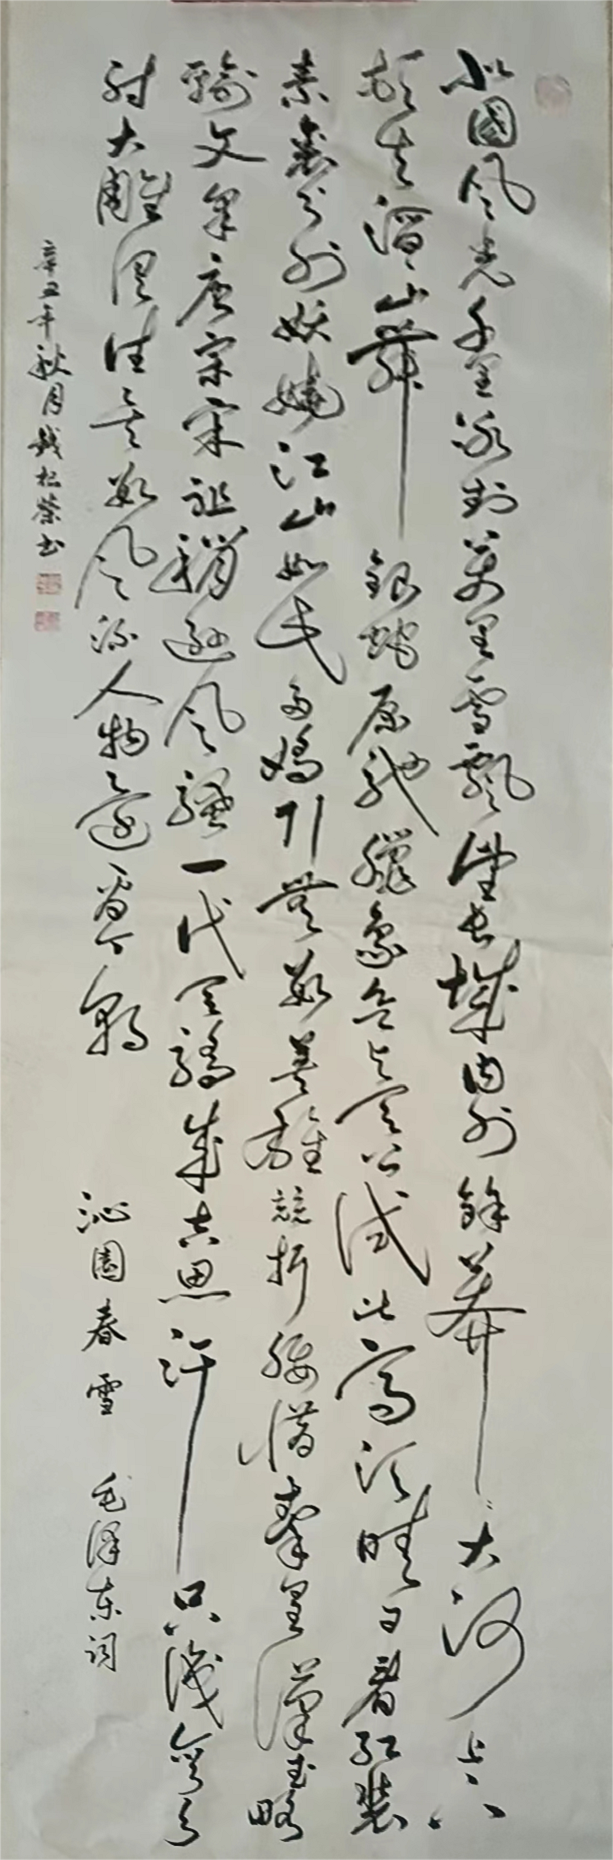 北國风光千里冰封万里雪飘望长城内外馀莽〻大河上下
顿失滔〻山舞银蛇原驰臘象欲与天公试比高须晴日看红装
素裹分外妖娆江山如此多娇引無数英雄競折腰惜秦皇漢武略
输文采唐宗宋祖稍逊风骚一代天骄成吉思汗只识弯弓
射大雕俱往矣数风流人物还看今朝 沁園春雪 毛泽东词
辛丑年秋月钱松荣书